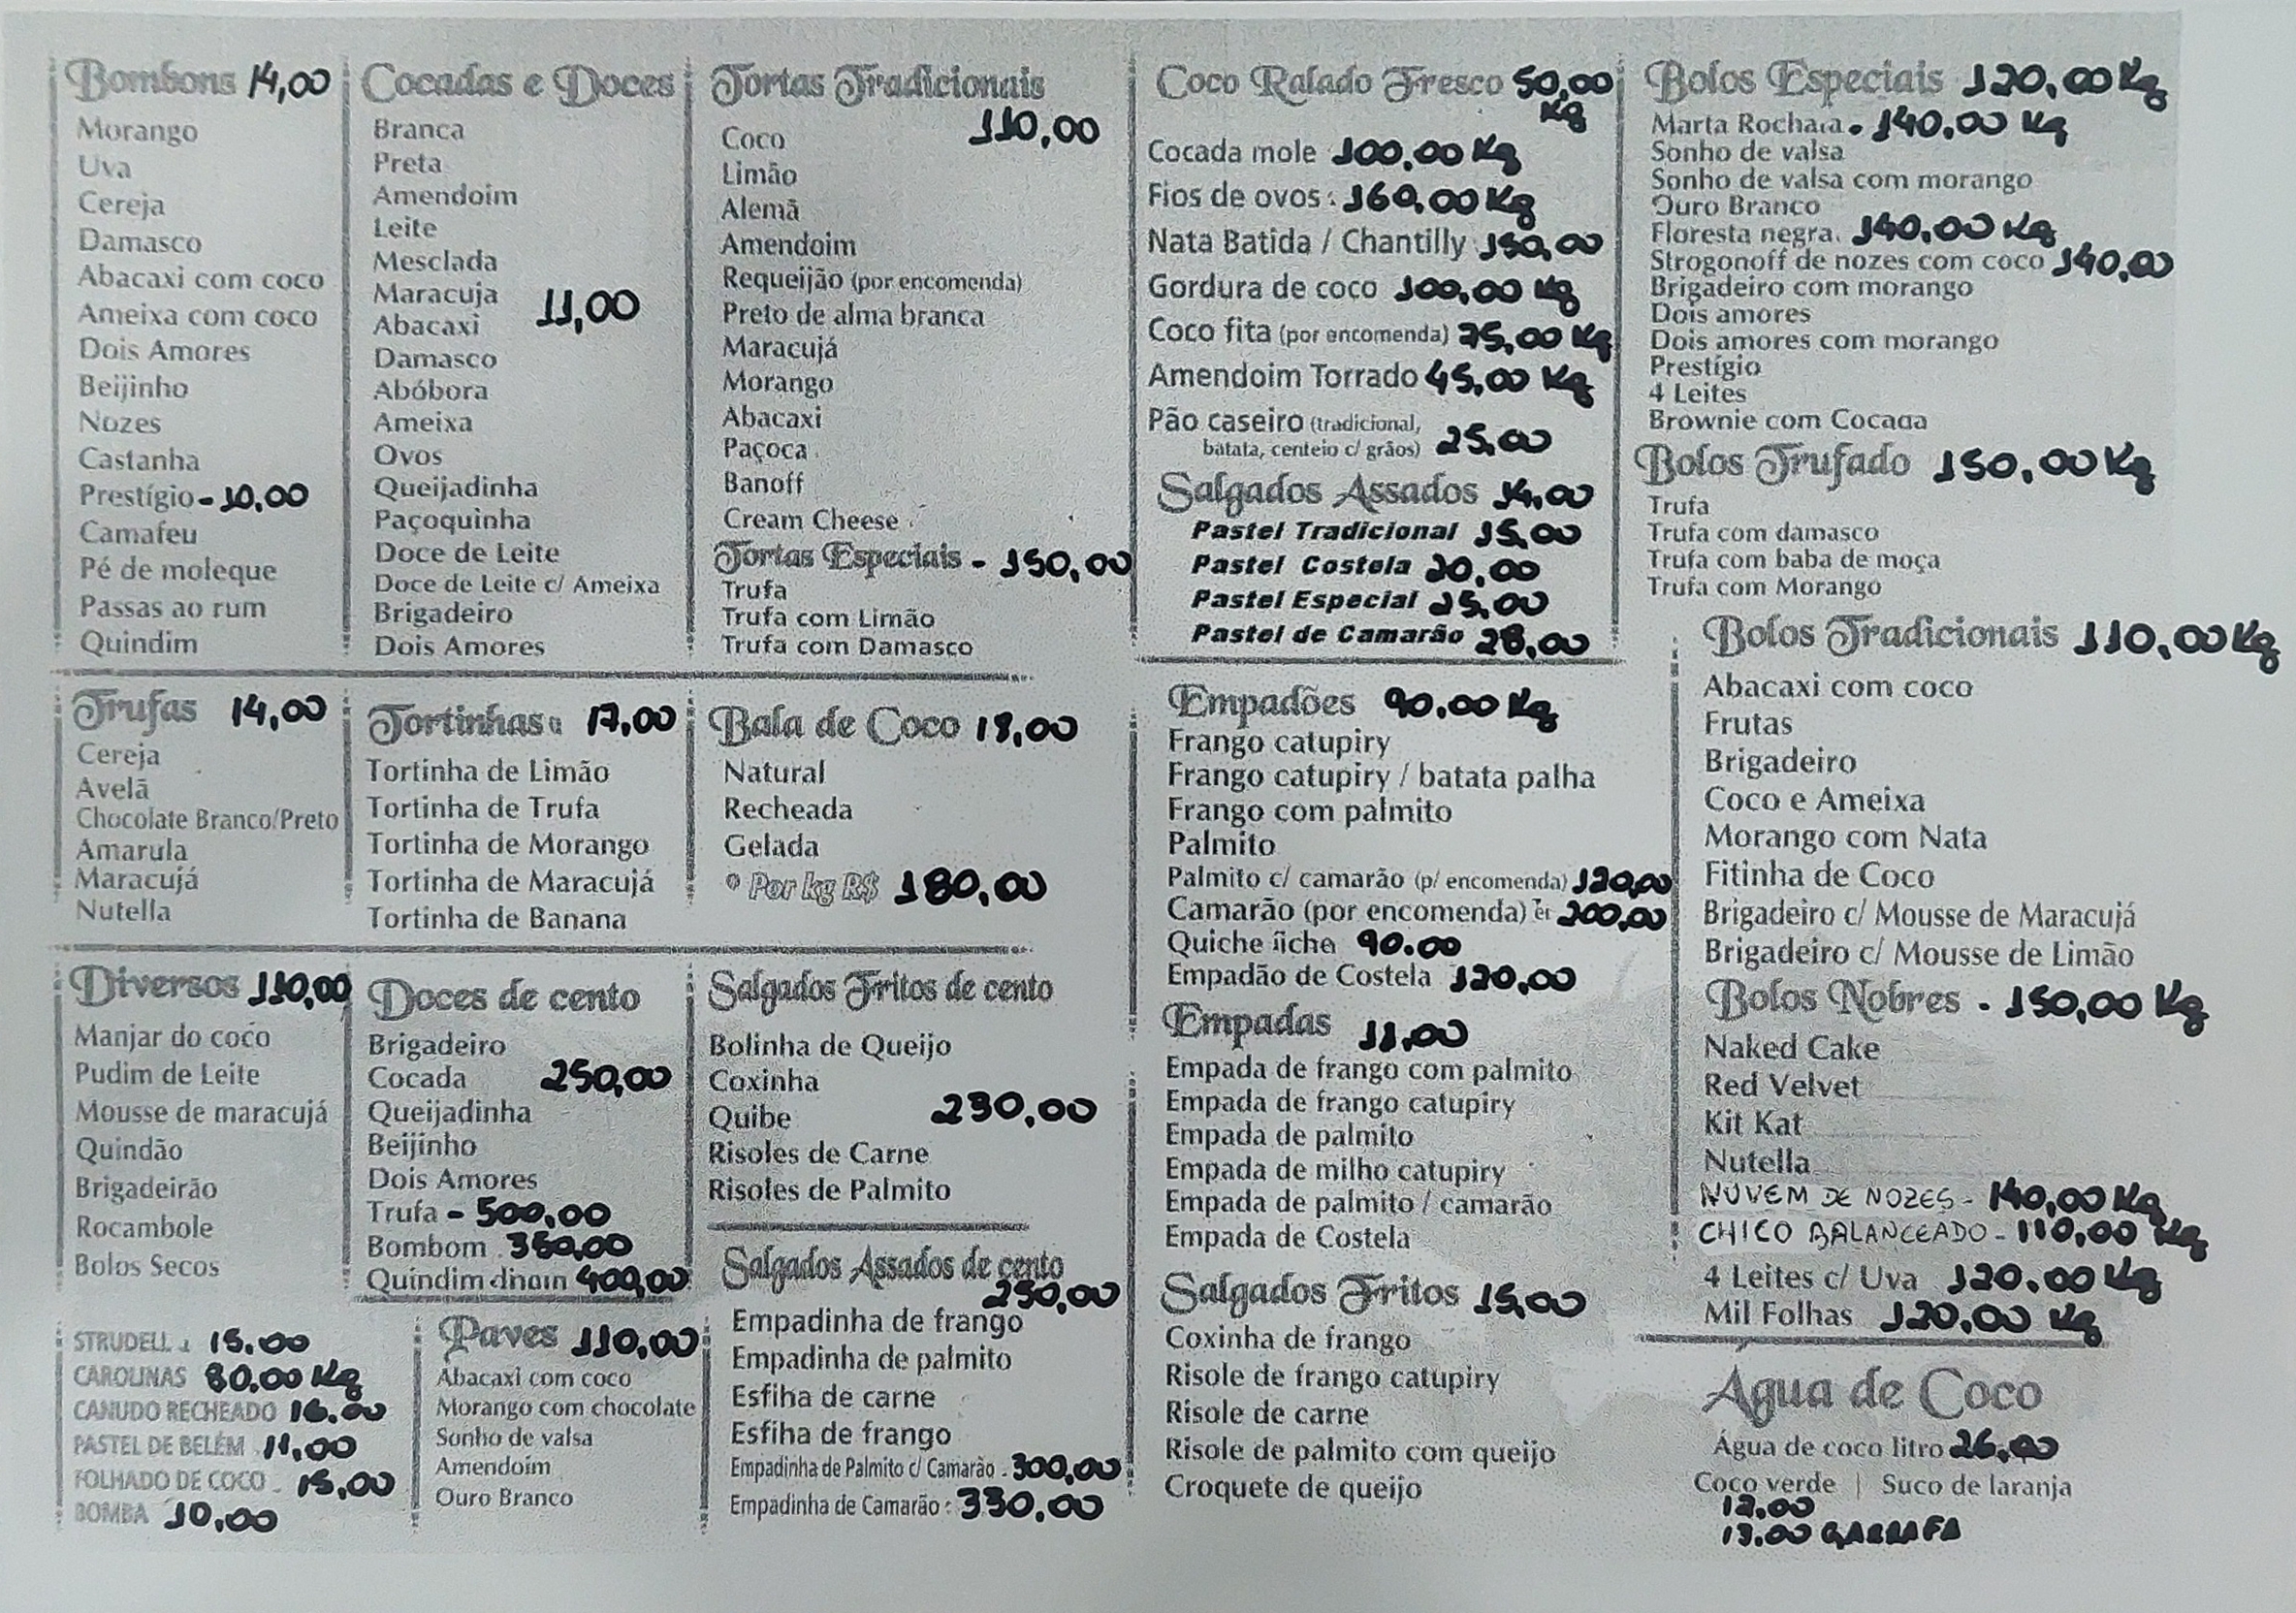 Bombons 14,00
Morango
Uva
Cereja
Damasco
Abacaxi com coco
Ameixa com coco
Dois Amores
Beijinho
Nozes
Castanha
Prestígio - 10,00
Camafeu
Pé de moleque
Passas ao rum
Quindim
Cocadas e Doces
Branca
Preta
Amendoim
Leite
Mesclada
Maracuja
11,00
Abacaxi
Damasco
Abóbora
Ameixa
Ovos
Queijadinha
Paçoquinha
Doce de Leite
Doce de Leite c/ Ameixa
Brigadeiro
Dois Amores
Tortas Tradicionais
110,00
Coco
Limão
Alemã
Amendoim
Requeijão (por encomenda)
Preto de alma branca
Maracujá
Morango
Abacaxi
Paçoca
Banoff
Cream Cheese
Tortas Especiais - 150,00
Trufa
Trufa com Limão
Trufa com Damasco
Trufas 14,00
Cereja
Avelã
Chocolate Branco/Preto
Amarula
Maracujá
Nutella
Tortinhas 17,00
Tortinha de Limão
Tortinha de Trufa
Tortinha de Morango
Tortinha de Maracujá
Tortinha de Banana
Bala de Coco 18,00
Natural
Recheada
Gelada
* Por kg R$ 180,00
Diversos 110,00
Manjar do coco
Pudim de Leite
Mousse de maracujá
Quindão
Brigadeirão
Rocambole
Bolos Secos
Doces de cento
Brigadeiro
Cocada 250,00
Queijadinha
Beijinho
Dois Amores
Trufa - 500,00
Bombom 350,00
Quindim 400,00
Salgados Fritos de cento
Bolinha de Queijo
Coxinha
Quibe 230,00
Risoles de Carne
Risoles de Palmito
Salgados Assados de cento
250,00
Empadinha de frango
Empadinha de palmito
Esfiha de carne
Esfiha de frango
Empadinha de Palmito c/ Camarão - 300,00
Empadinha de Camarão : 330.00
STRUDELL 15.00
CAROLINAS 80.00 Kg
CANUDO RECHEADO 16.00
PASTEL DE BELÉM 11,00
FOLHADO DE COCO - 15,00
BOMBA 10,00
Paves 110,00
Abacaxi com coco
Morango com chocolate
Sonho de valsa
Amendoim
Ouro Branco
Coco Ralado Fresco 50,00
Kg
Cocada mole 100,00 Kg
Fios de ovos : 160,00 Kg
Nata Batida / Chantilly 150,00
Gordura de coco 100,00 Kg
Coco fita (por encomenda) 75,00 Kg
Amendoim Torrado 45,00 Kg
Pão caseiro (tradicional,
batata, centeio c/ grãos) 25,00
Salgados Assados 14,00
Pastel Tradicional 15,00
Pastel Costela 20,00
Pastel Especial 25,00
Pastel de Camarão 28,00
Empadões 90.00 Kg
Frango catupiry
Frango catupiry / batata palha
Frango com palmito
Palmito
Palmito c/ camarão (p/ encomenda) 120,00
Camarão (por encomenda) 200,00
Quiche 90.00
Empadão de Costela 120,00
Empadas 11,00
Empada de frango com palmito
Empada de frango catupiry
Empada de palmito
Empada de milho catupiry
Empada de palmito / camarão
Empada de Costela
Salgados Fritos 15,00
Coxinha de frango
Risole de frango catupiry
Risole de carne
Risole de palmito com queijo
Croquete de queijo
Bolos Especiais 120,00 Kg
Marta Rocha . 140,00 Kg
Sonho de valsa
Sonho de valsa com morango
Ouro Branco
Floresta negra. 140,00 Kg
Strogonoff de nozes com coco 140,00
Brigadeiro com morango
Dois amores
Dois amores com morango
Prestígio
4 Leites
Brownie com Cocada
Bolos Trufado 150,00 Kg
Trufa
Trufa com damasco
Trufa com baba de moça
Trufa com Morango
Bolos Tradicionais 110,00 Kg
Abacaxi com coco
Frutas
Brigadeiro
Coco e Ameixa
Morango com Nata
Fitinha de Coco
Brigadeiro c/ Mousse de Maracujá
Brigadeiro c/ Mousse de Limão
Bolos Nobres - 150,00 Kg
Naked Cake
Red Velvet
Kit Kat
Nutella
NUVEM DE NOZES - 140,00 Kg
CHICO BALANCEADO - 110,00 Kg
4 Leites c/ Uva 120.00 Kg
Mil Folhas 120,00 Kg
Agua de Coco
Água de coco litro 26,00
Coco verde | Suco de laranja
12,00
13.00 GARRAFA